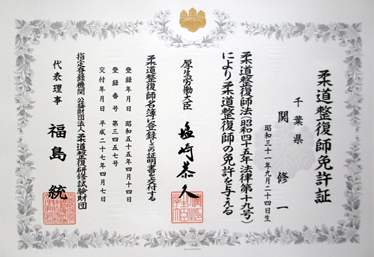 柔道整復師免許証
千葉県
関修一
昭和三十一年九月二十四日生
柔道整復師法(昭和四十五年法律第十九号)
により柔道整復師の免許を与える
厚生労働大臣 塩崎恭久
柔道整復師名簿に登録しこの証明書を交付する
登録年月日 昭和五十五年四月十四日
登録番号 第三四五七号
交付年月日 平成二十七年四月七日
指定登録機関 公益財団法人柔道整復研修試験財団
代表理事 福島統